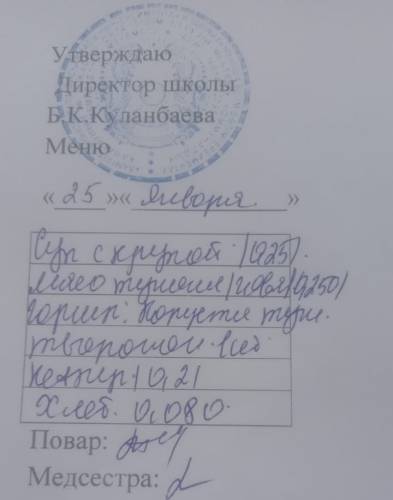 Утверждаю
Директор школы
Б.К.Куланбаева
Меню
« 25 »« января »
Суп с крупой. /0,25/.
Мясо тушоная /говя/ 0,250/
Горнир: Капуста туш.
творожок 1шт.
кефир /0,2/
Хлеб. 0,080.
Повар:
Медсестра: